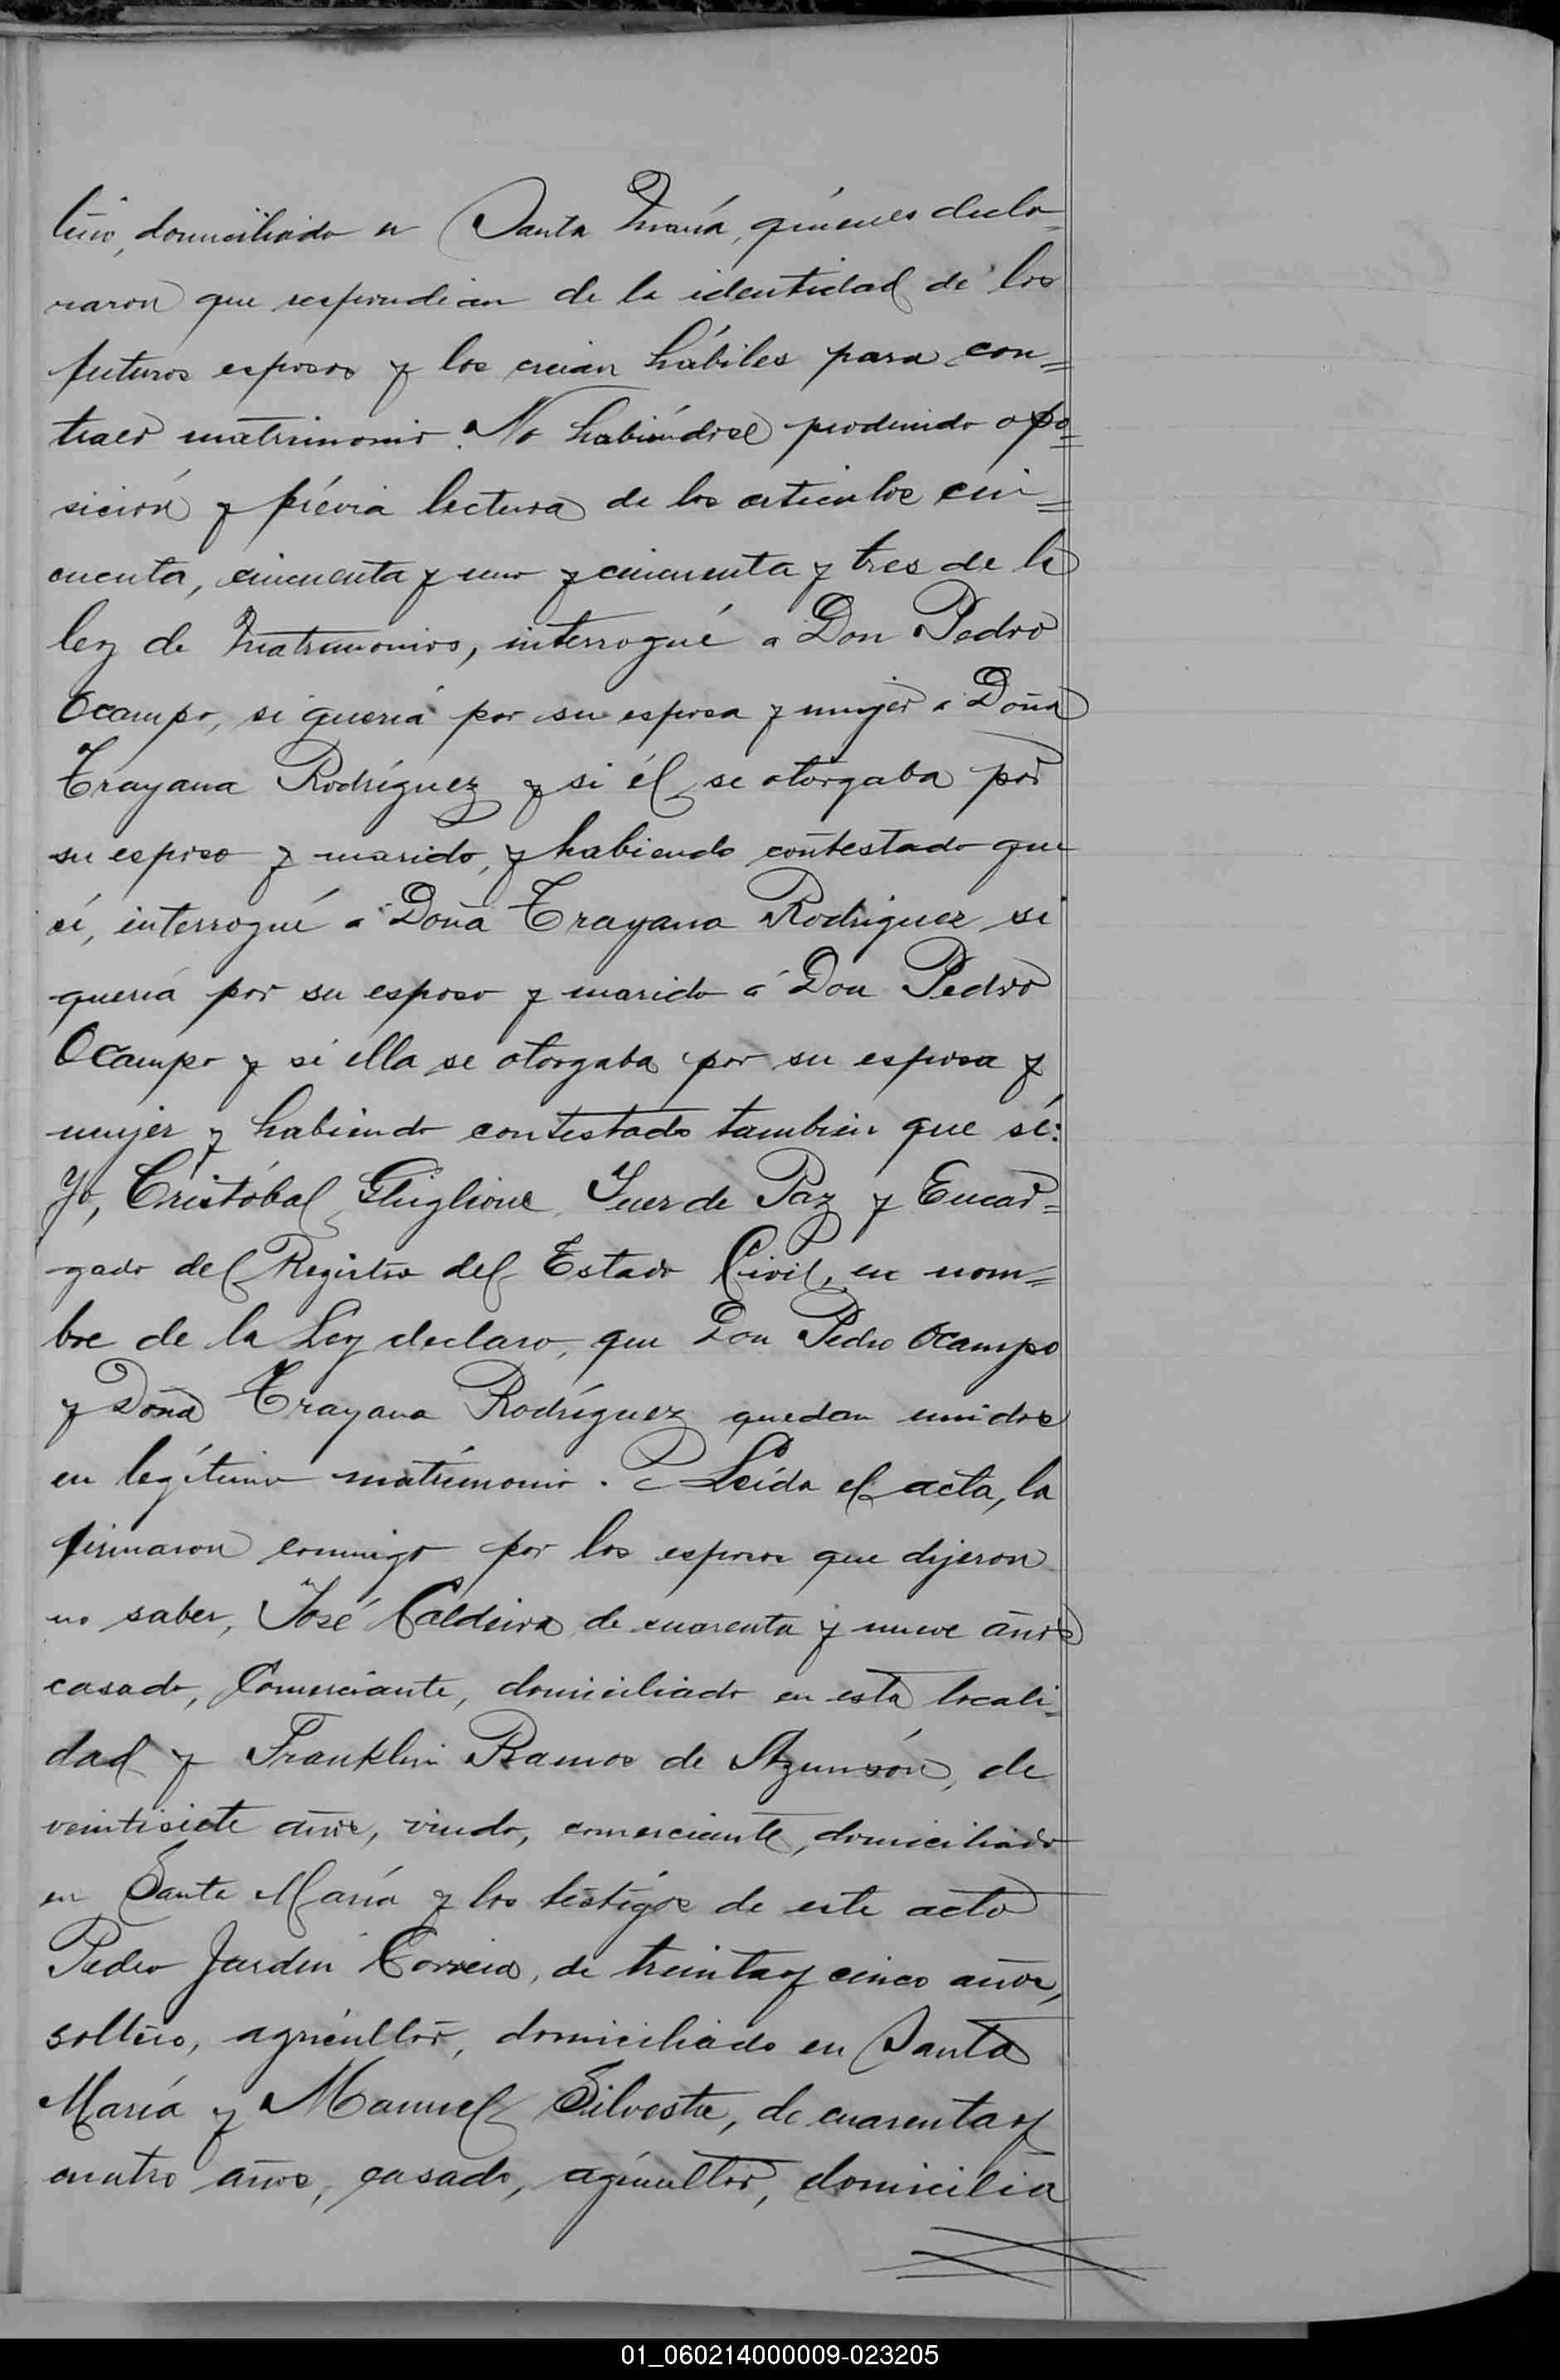 domiciliado en Santa María, quiénes decla=
raron que respondían de la identidad de los
futuros esposos y los creían hábiles para con=
traer matrimonio. No habiéndose producido opo=
sición y prévia lectura de los articulos cin=
cuenta, cincuenta y uno y cincuenta y tres de la
ley de Matrimonios, interrogué a Don Pedro
Ocampo, si quería por su esposa y mujer a Doña
Trayana Rodríguez y si él se otorgaba por
su esposo y marido, y habiendo contestado que
sí, interrogué a Doña Trayana Rodriguez si
quería por su esposo y marido á Don Pedro
Ocampo y si ella se otorgaba por su esposa y
mujer y habiendo contestado tambien que sí:
Yo, Cristóbal Ghiglione, Juez de Paz y Encar=
gado del Registro del Estado Civil, en nom=
bre de la Ley declaro, que Don Pedro Ocampo
y Doña Trayana Rodríguez quedan unidos
en legítimo matrimonio. Leída el acta, la
firmaron conmigo por los esposos que dijeron
no saber, José Caldeira de cuarenta y nueve años
casado, Comerciante, domiciliado en esta locali=
dad y Franklin Ramos de de
veintisiete años, viudo, comerciante, domiciliado
en Santa María y los testigos de este acto
Pedro Jardin Correia, de treinta y cinco años,
soltero, agricultor, domiciliado en Santa
María y Manuel Silvestre, de cuarenta y
cuatro años, casado, agricultor, domicilia
01_060214000009-023205